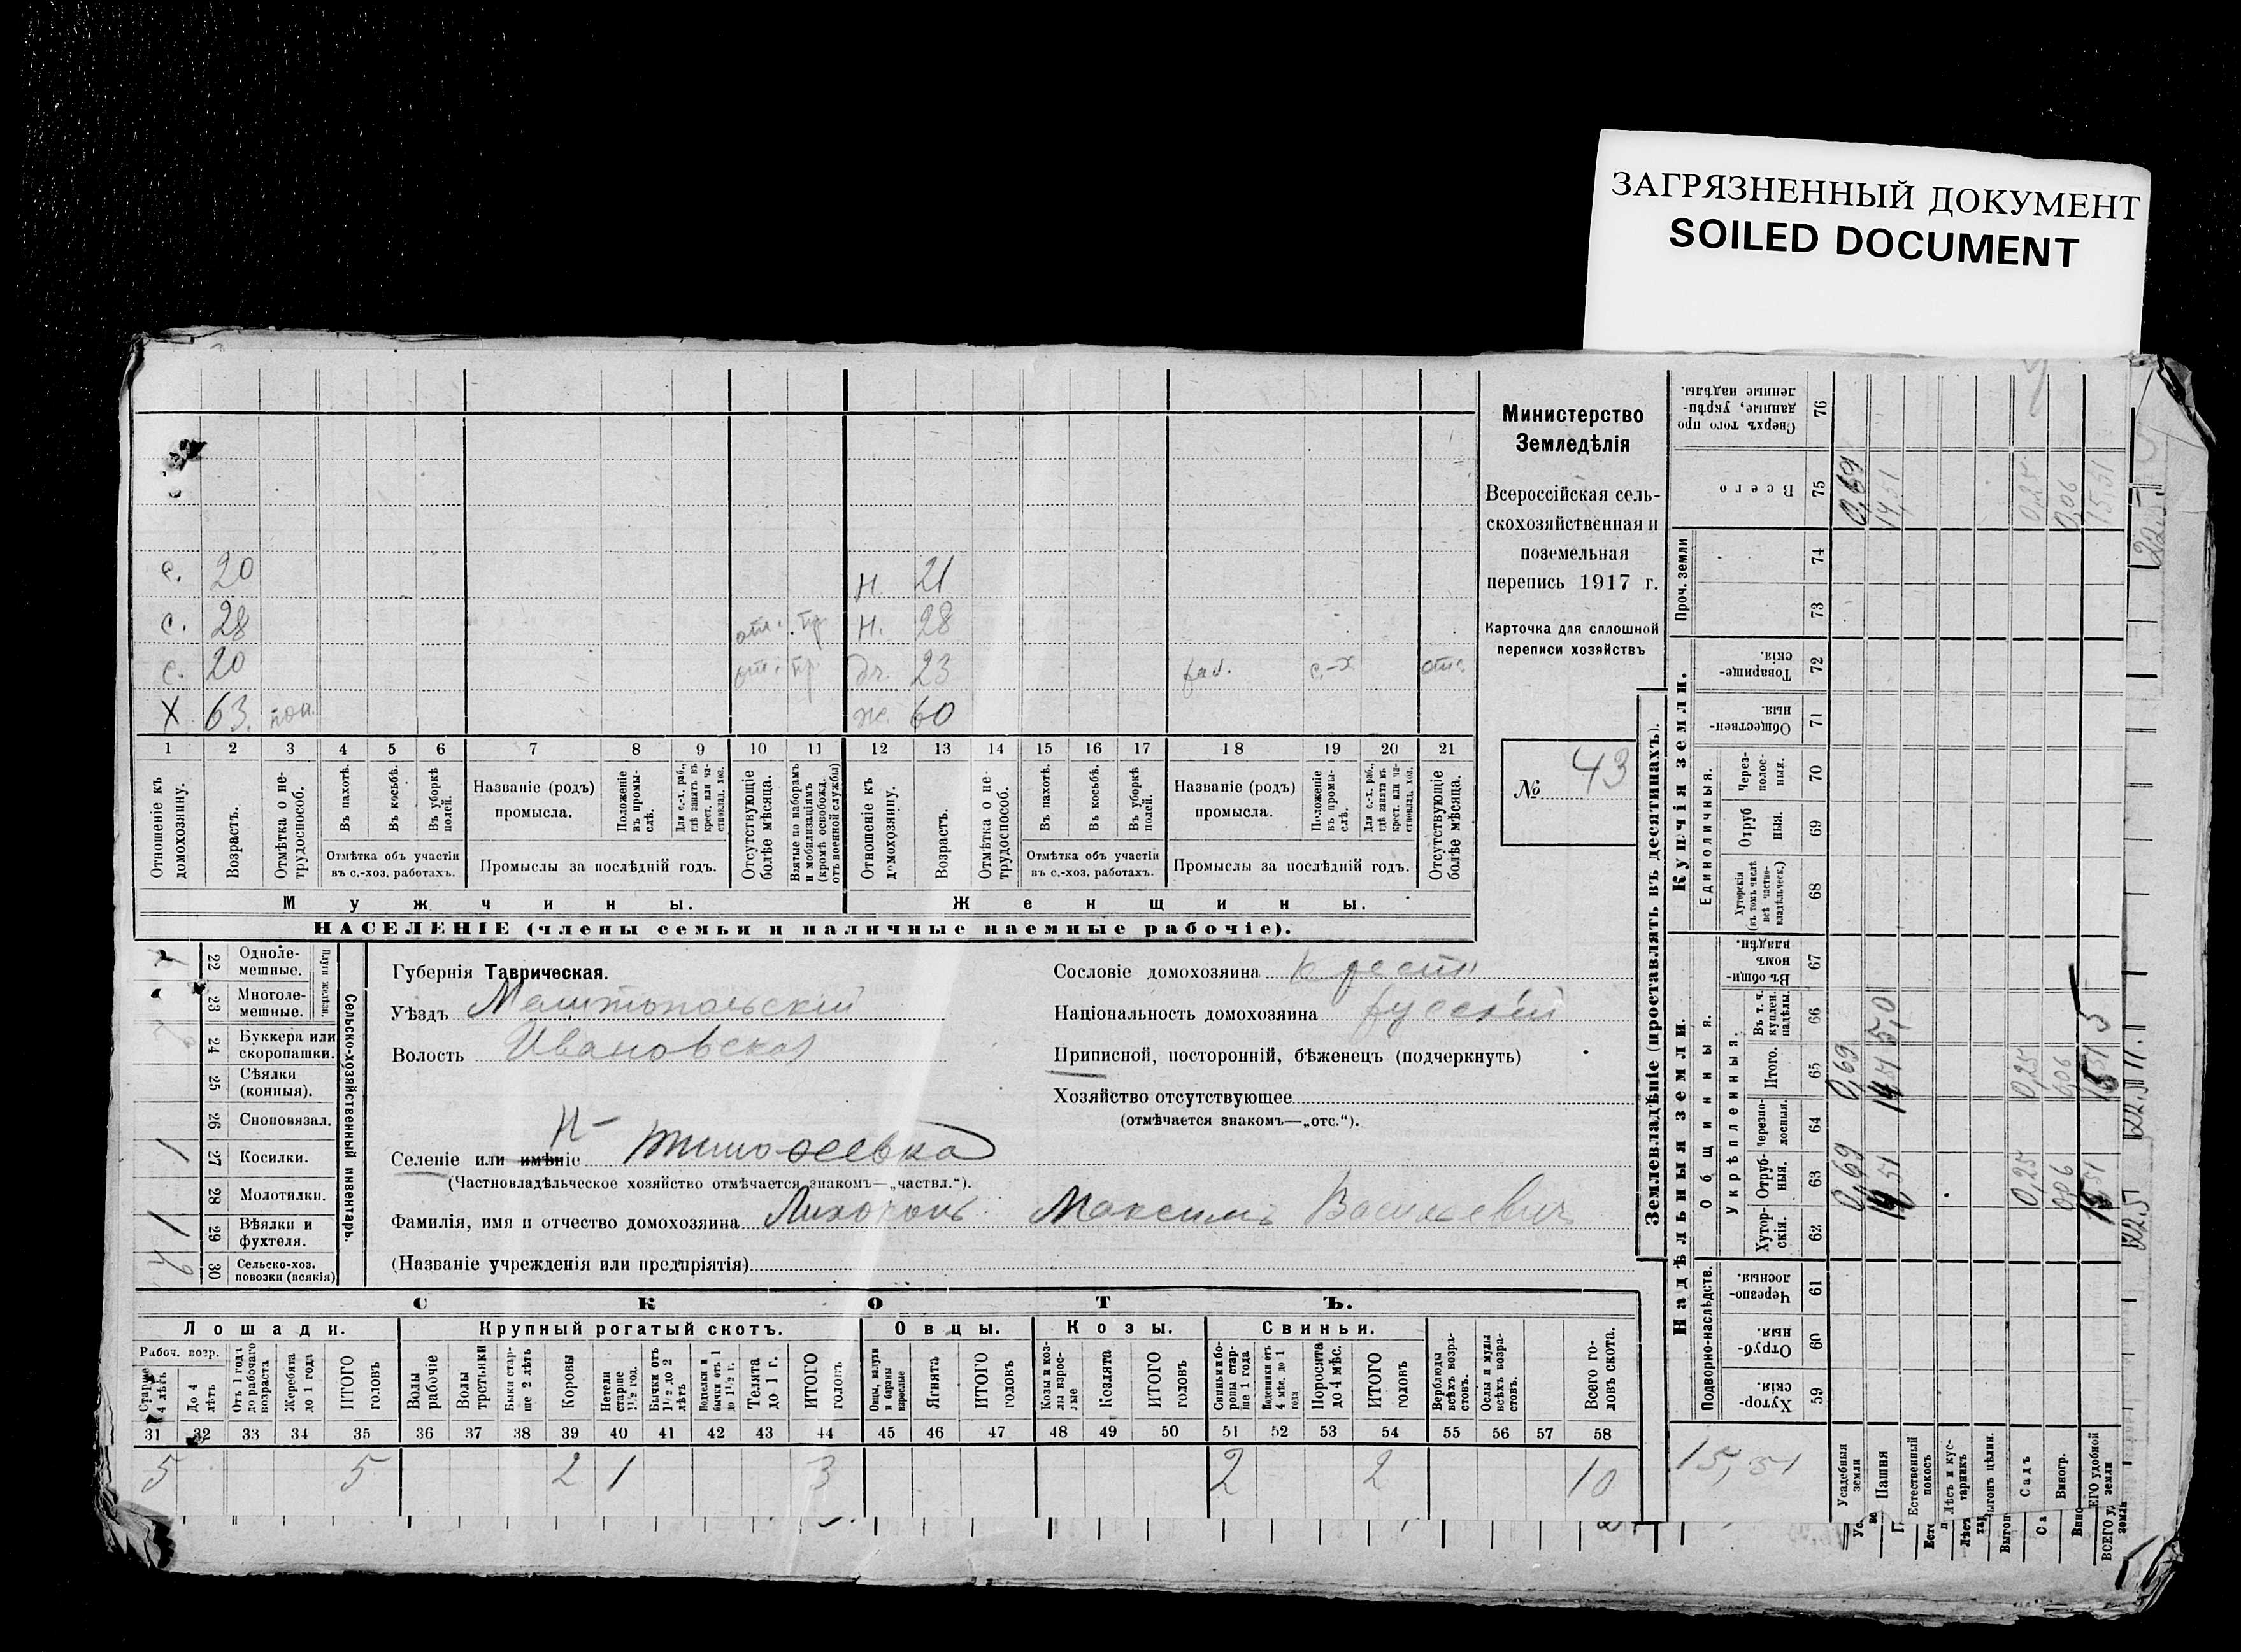 ЗАГРЯЗНЕННЫЙ ДОКУМЕНТ
SOILED DOCUMENT
Министерство
Земледѣлія
Всероссійская сель-
скохозяйственная и
поземельная
перепись 1917 г.
Карточка для сплошной
переписи хозяйствъ
№ 43
с. 20 н. 21
с. 28 отс. пр. н. 28
с. 20 отс. пр. дч. 23 с-х отс.
X 63. ж. 60
1 2 3 4 5 6 7 8 9 10 11 12 13 14 15 16 17 18 19 20 21
Отношеніе къ домохозяину.
Возрастъ.
Отмѣтка о не-трудоспособ.
Въ пахотѣ.
Въ косьбѣ.
Въ уборкѣ полей.
Отмѣтка объ участіи
въ с.-хоз. работахъ.
Названіе (родъ)
промысла.
Положеніе въ промы-слѣ.
Для с.-х. раб., гдѣ занятъ въ крест. или ча-стновлад. хоз.
Промыслы за послѣдній годъ.
Отсутствующіе болѣе мѣсяца.
Взятые по наборамъ и мобилизаціямъ (кромѣ освобожд. отъ военной службы)
Отношеніе къ домохозяину.
Возрастъ.
Отмѣтка о не-трудоспособ.
Въ пахотѣ.
Въ косьбѣ.
Въ уборкѣ полей.
Отмѣтка объ участіи
въ с.-хоз. работахъ.
Названіе (родъ)
промысла.
Положеніе въ промы-слѣ.
Для с.-х. раб., гдѣ занята въ крест. или ча-стновлад. хоз.
Промыслы за послѣдній годъ.
Отсутствующіе болѣе мѣсяца.
Мужчины. Женщины.
НАСЕЛЕНІЕ (члены семьи и наличные наемные рабочіе).
Сельско-хозяйственный инвентарь.
Плуги желѣзн.
22 Одноле-мешные.
23 Многоле-мешные.
24 Буккера или скоропашки.
25 Сѣялки (конныя).
26 Сноповязал.
1 27 Косилки.
28 Молотилки.
1 29 Вѣялки и фухтеля.
30 Сельско-хоз. повозки (всякія)
Губернія Таврическая.
Уѣздъ Мелитопольскій
Волость Ивановская
Сословіе домохозяина крест.
Національность домохозяина русскій
Приписной, посторонній, бѣженецъ (подчеркнуть)
Хозяйство отсутствующее
(отмѣчается знакомъ—„отс.“).
Селеніе или имѣніе Н-Тимофеевка
(Частновладѣльческое хозяйство отмѣчается знакомъ—„частвл.“).
Фамилія, имя и отчество домохозяина Максимъ Васильевичъ
(Названіе учрежденія или предпріятія)
СКОТЪ.
Лошади. Крупный рогатый скотъ. Овцы. Козы. Свиньи.
Рабоч. возр.
Старше 4 лѣтъ
До 4 лѣтъ
Отъ 1 года до рабочаго возраста
Жеребята до 1 года
ИТОГО головъ
Волы рабочіе
Волы третьяки
Быки стар-ше 2 лѣтъ
Коровы
Нетели старше 1½ год.
Бычки отъ 1½ до 2 лѣтъ
Подтелки и бычки отъ 1 до 1½ г.
Телята до 1 г.
ИТОГО головъ
Овцы, валухи и бараны взрослые
Ягнята
ИТОГО головъ
Козы и коз-лы взрос-лые
Козлята
ИТОГО головъ
Свиньи и бо-ровы стар-ше 1 года
Подсвинки отъ 4 мѣс. до 1 года
Поросята до 4 мѣс.
ИТОГО головъ
Верблюды всѣхъ возра-стовъ.
Ослы и мулы всѣхъ возра-стовъ.
Всего го-ловъ скота.
31 32 33 34 35 36 37 38 39 40 41 42 43 44 45 46 47 48 49 50 51 52 53 54 55 56 57 58
5 5 2 1 3 2 2 10
Землевладѣніе (проставлять въ десятинахъ).
Надѣльныя земли. Купчія земли.
Подворно-наслѣдств. Общинныя. Единоличныя. Проч. земли
Укрѣпленныя.
59 Хутор-скія
60 Отруб-ныя.
61 Черезпо-лосныя.
62 Хутор-скія.
63 Отруб-ныя.
64 Черезпо-лосныя.
65 Итого.
66 Въ т. ч. куплен. надѣлы.
67 Въ общи-номъ владѣн.
68 Хуторскія (въ томъ числѣ всѣ частно-владѣльческ.)
69 Отруб ныя.
70 Через-полос-ныя.
71 Обществен-ныя
72 Товарище-скія.
73
74
75 Всего
76 Сверхъ того про данные, укрѣп-ленные надѣлы.
15,51
Усадебныя земли 0,69 0,69 0,69
Пашня 14,51 14,51 5,0 14,51
Естественный покосъ
Лѣсъ и кус-тарникъ
Выгонъ цѣлин.
Садъ 0,25 0,25 0,25
Виногр. 0,06 0,06 0,06
ВСЕГО удобной земли 15,51 15,51 5 15,51